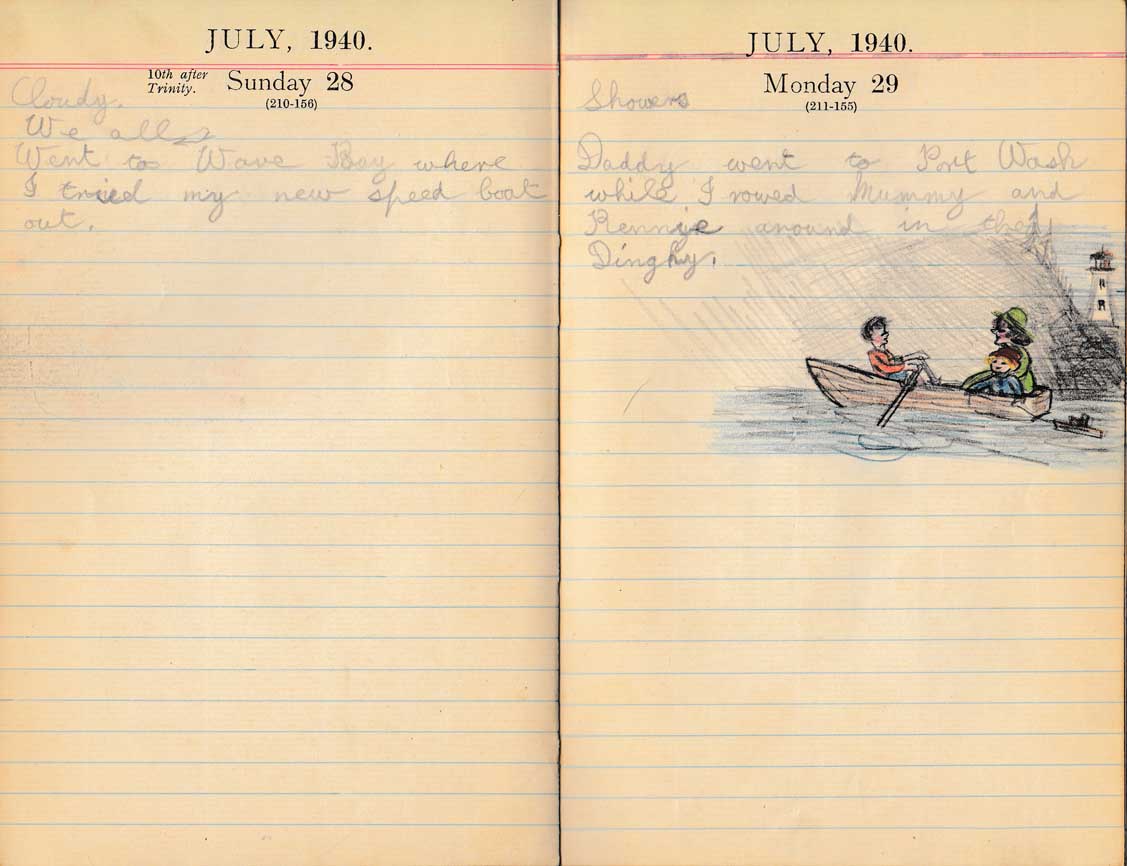 JULY, 1940.
10th after
Trinity.
Sunday 28
(210-156)
Cloudy.
We all
Went to Wave Bay where
I tried my new speed boat
out.
JULY, 1940.
Monday 29
(211-155)
Showers
Daddy went to Port Wash
while I rowed Mummy and
Rennie around in the
Dinghy.